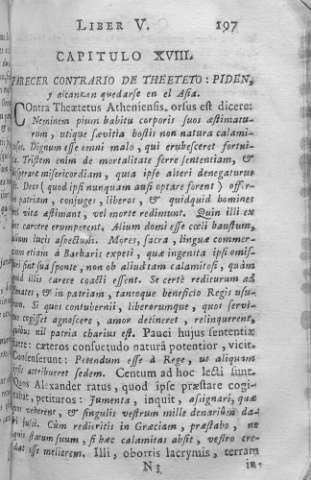 LIBER V. 197
CAPITULO XVIII.
PARECER CONTRARIO DE THEETETO: PIDEN,
y alcanzan quedarse en el Asia.
Contra Theætetus Atheniensis, orsus est dicere:
Neminem pium habitu corporis suos æstimatu-
rum, utique sævitia hostis non natura calami-
tosos. Dignum esse omni malo, qui erubesceret fortui-
ta. Tristem enim de mortalitate ferre sententiam, &
desperare misericordiam, quia ipse alteri denegaturus
sit. Deos (quod ipsi nunquam ausi optare forent) offer-
re patriam, conjuges, liberos, & quidquid homines
vel vita æstimant, vel morte redimunt. Quin illi ex
hoc carcere erumperent. Alium domi esse cœli haustum,
alium lucis aspectum. Mores, sacra, linguæ commer-
cium etiam à Barbaris expeti, quæ ingenita ipsi omis-
suri sint sua sponte, non ob aliud tam calamitosi, quàm
quod illis carere coacti essent. Se certè rediturum ad
penates, & in patriam, tantoque beneficio Regis usu-
rum. Si quos contubernii, liberorumque, quos servi-
tus coegisset agnoscere, amor detineret, relinquerent,
quibus nil patria charius est. Pauci hujus sententiæ
fuere: cæteros consuetudo naturâ potentior, vicit.
Consenserunt: Petendum esse à Rege, ut aliquam
ipsis attribueret sedem. Centum ad hoc lecti sunt.
Quos Alexander ratus, quod ipse præstare cogi-
tabat, petituros: Jumenta, inquit, assignari, quæ
vos veherent, & singulis vestrum mille denariûm da-
ri jussi. Cùm redieritis in Græciam, præstabo, ne
quis statum suum, si hæc calamitas absit, vestro cre-
dat esse meliorem. Illi, obortis lacrymis, terram
N 3 in-